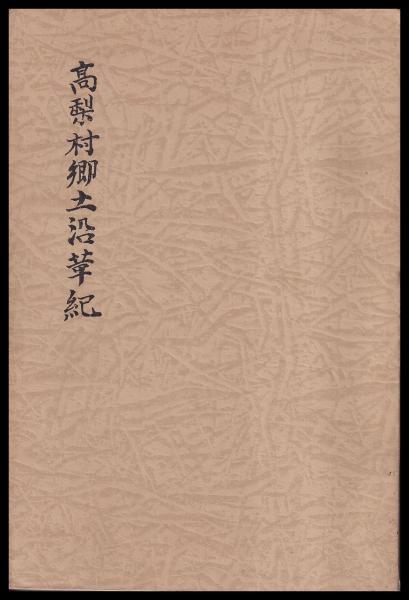 高梨村郷土沿革紀